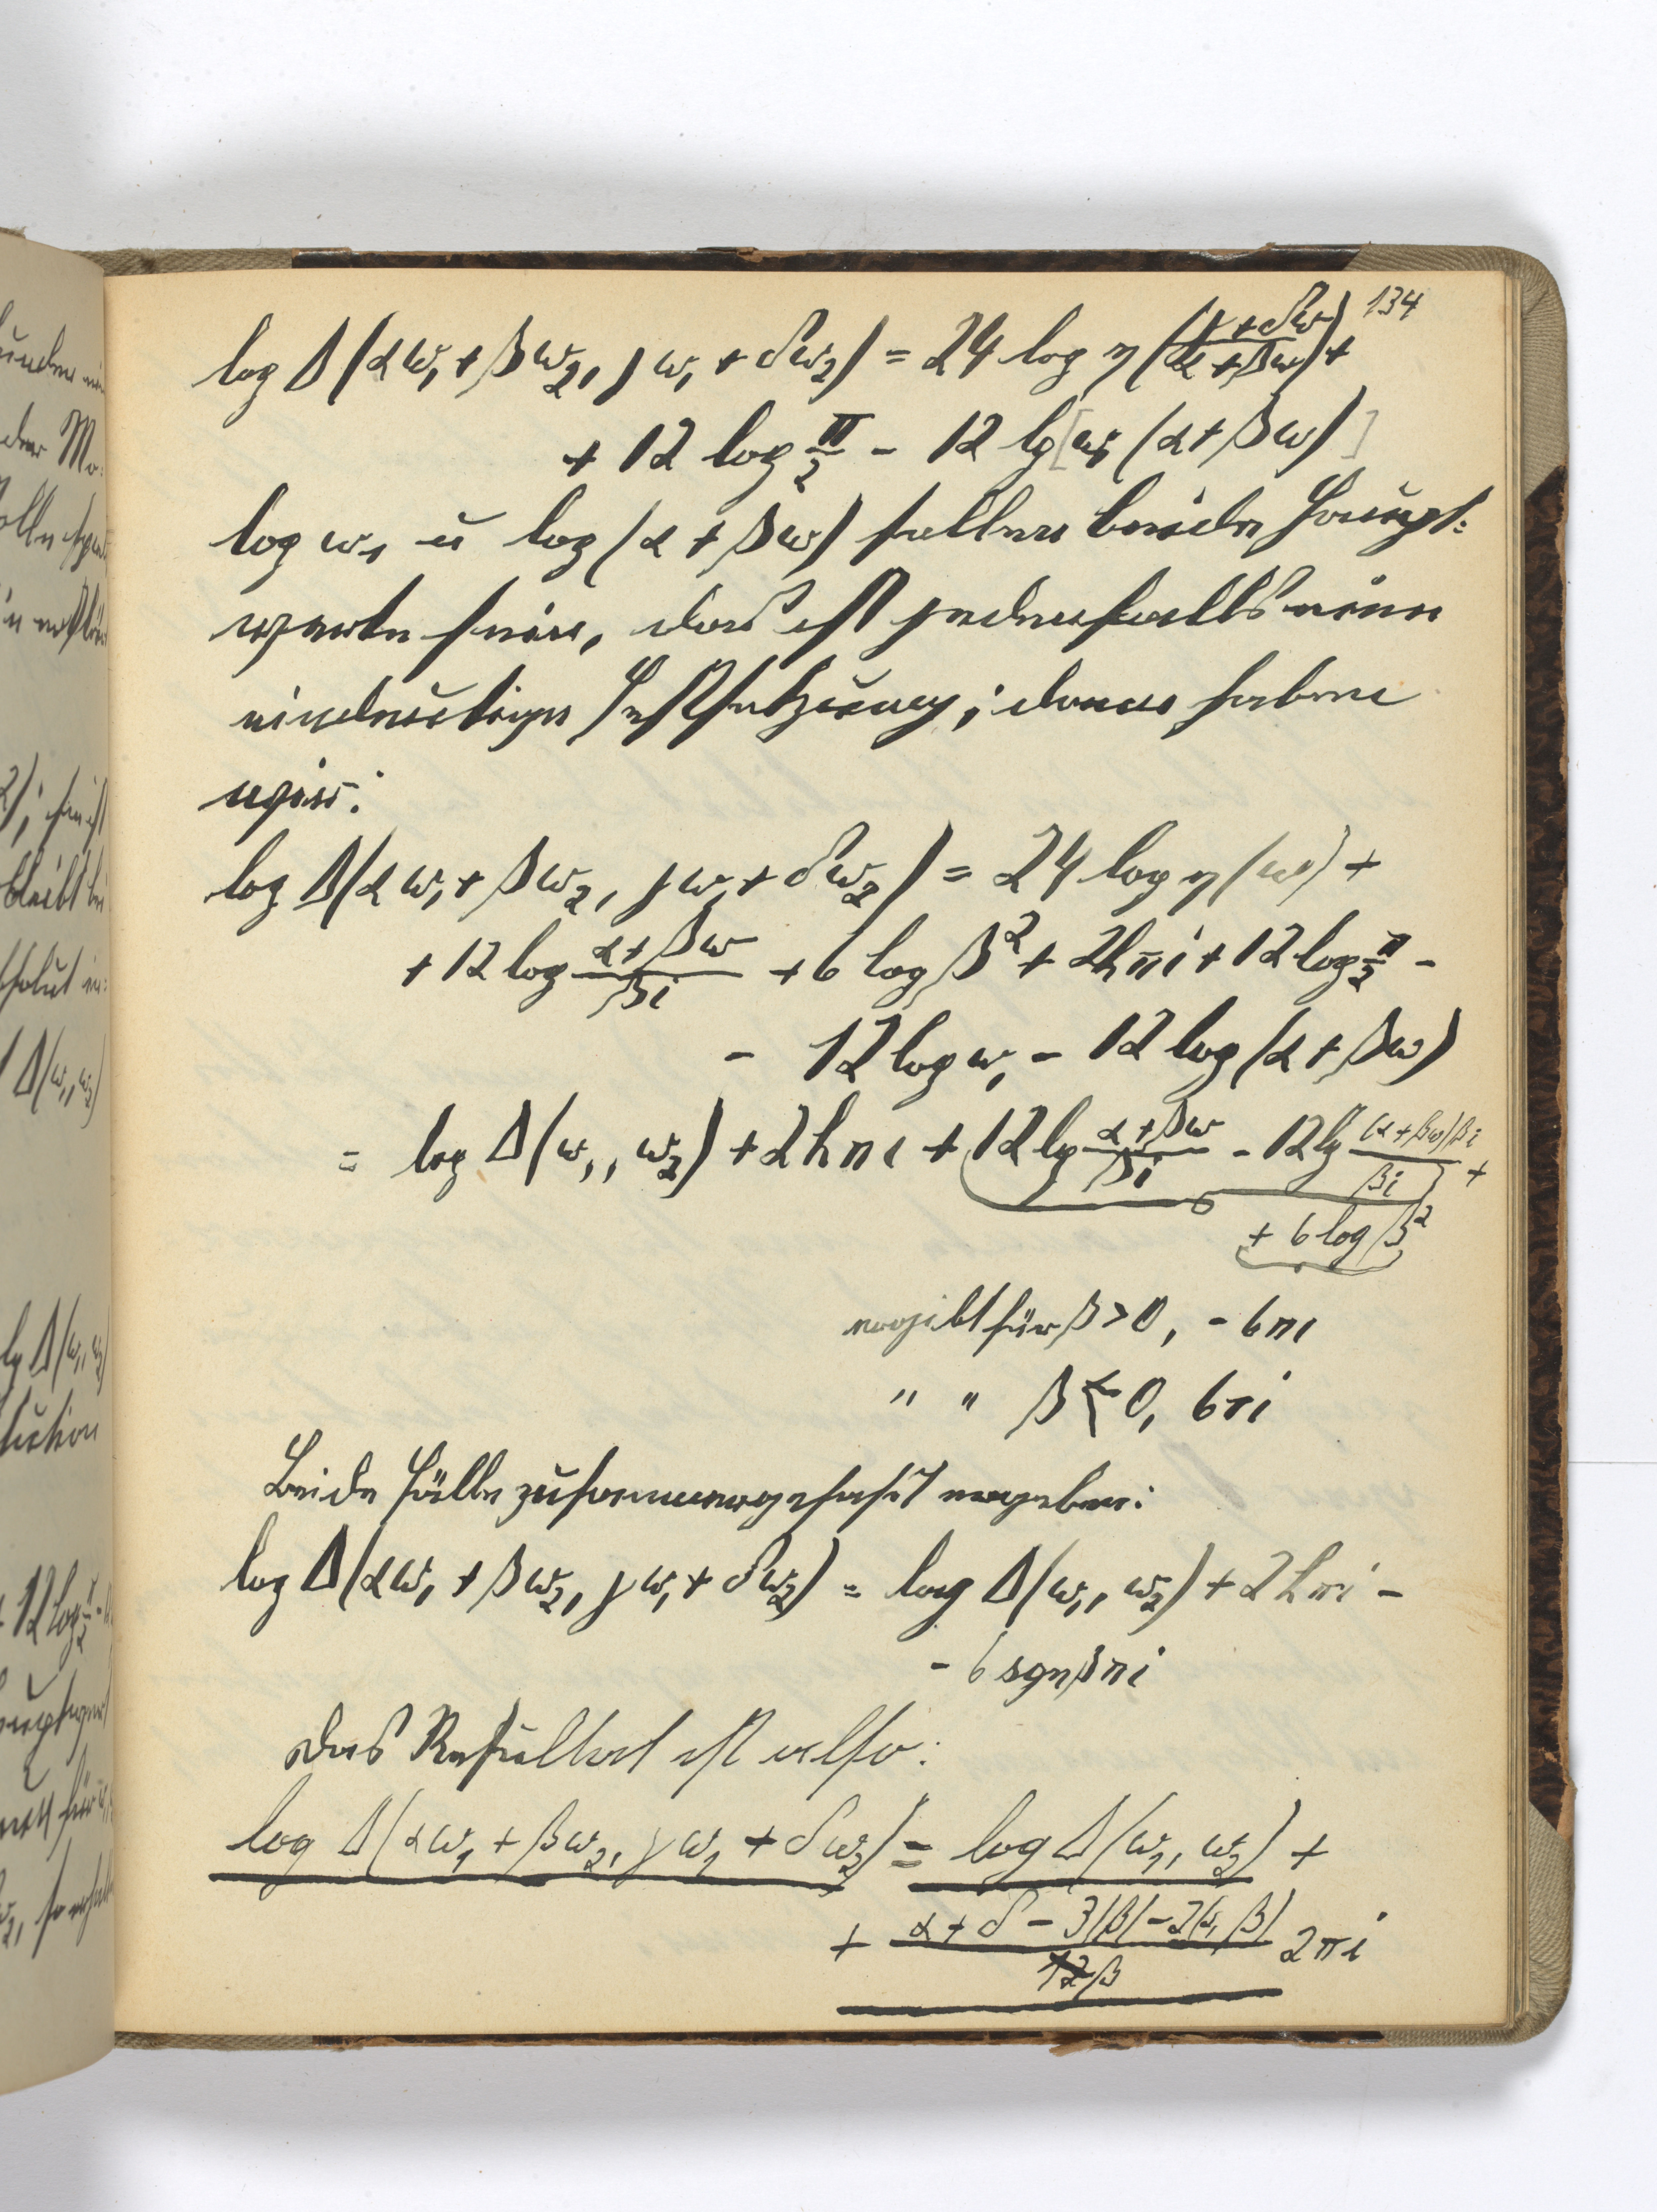 134
log Δ(αω₁ + βω₂, γω₁ + δω₂) = 24 log η((γ+δω)/(α+βω)) +
+ 12 log π/2 - 12 lg[ω₁ (α+βω)]
log ω₁ u log(α + βω) sollen beide Haupt-
werte sein, das ist jedenfalls eine
eindeutige Festsetzung; dann haben
wir:
log Δ(αω₁ + βω₂, γω₁ + δω₂) = 24 log η(ω) +
+ 12 log (α+βω)/(βi) + 6 log β² + 2hπi + 12 log π/2 -
- 12 log ω₁ - 12 log(α + βω)
= log Δ(ω₁, ω₂) + 2hπi + 12 lg (α+βω)/(βi) - 12 lg ((α+βω)βi)/(βi) +
+ 6 log β²
ergibt für β > 0, - 6πi
" " β < 0, 6πi
Beide Fälle zusammengefaßt ergeben:
log Δ(αω₁ + βω₂, γω₁ + δω₂) = log Δ(ω₁, ω₂) + 2hπi -
- 6 sgnβπi
Das Resultat ist also:
log Δ(αω₁ + βω₂, γω₁ + δω₂) = log Δ(ω₁, ω₂) +
+ (α + δ - 3|β| - 2(α, β))/(12β) 2πi